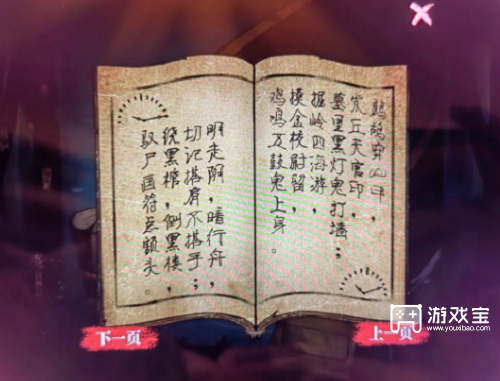 鹧鸪穿山甲，
发丘天官印，
墓里黑灯鬼打墙；
岭四海游，
摸金校尉留，
鸡鸣五鼓鬼上身。
明走阴，暗行舟，
切记搭肩不搭手；
绕黑棺，倒黑楼，
驭尸画符额头。
下一页
上一页
游戏宝
www.youxibao.com